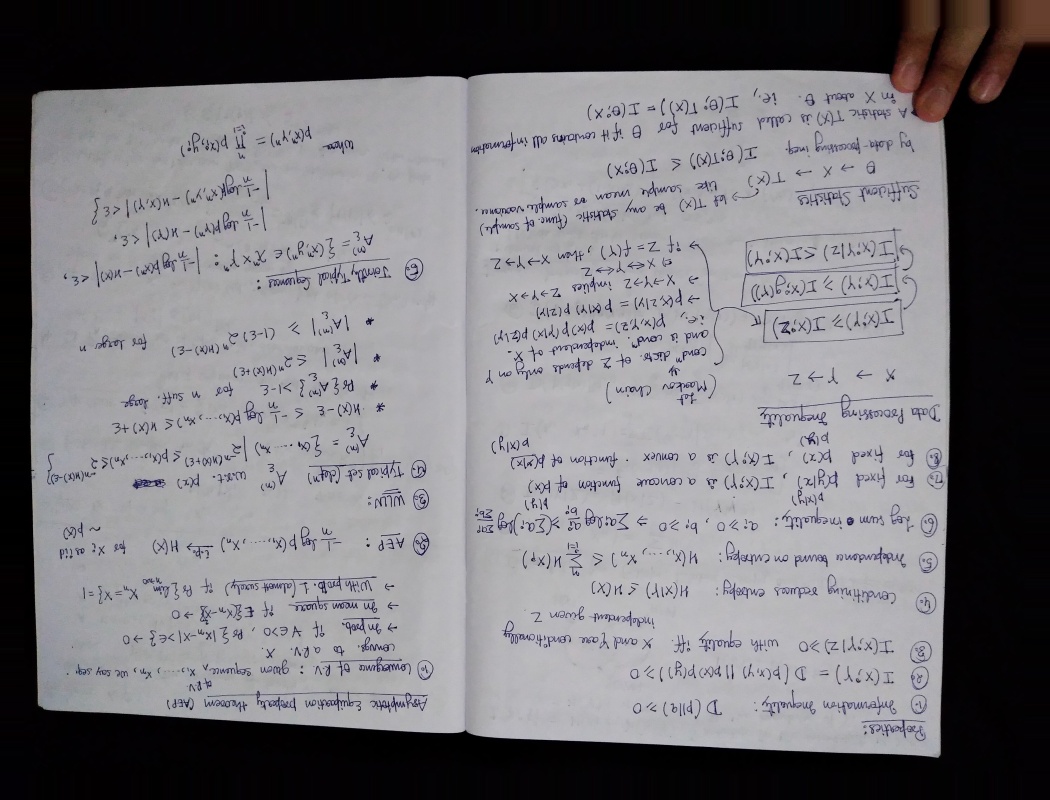 Properties:
1. Information Inequality: D(p||q) ≥ 0
2. I(X;Y) = D(p(x,y) || p(x) p(y)) ≥ 0
3. I(X;Y|Z) ≥ 0 with equality iff. X and Y are conditionally
independent given Z
4. Conditioning reduces entropy: H(X|Y) ≤ H(X)
5. Independence bound on entropy: H(X1, ..., Xn) ≤ Σ_{i=1}^{n} H(Xi)
6. Log sum inequality: ai ≥ 0, bi ≥ 0 ⇒ Σ ai log ai/bi ≥ (Σ ai) log Σai/Σbi
p(x|y) p(y)
7. For fixed p(y|x), I(X;Y) is a concave function of p(x)
8. for fixed p(x), I(X;Y) is a convex function of p(y|x)
p(y) p(x|y)
Data Processing Inequality
X → Y → Z
(Let Markov Chain)
condn distr. of Z depends only on Y
and is condn independent of X.
i.e., p(x,y,z) = p(x) p(y|x) p(z|y)
→ p(x,z|y) = p(x|y) p(z|y)
→ X→Y→Z implies Z→Y→X
⇔ X↔Y↔Z
→ if Z = f(Y), then X→Y→Z
I(X;Y) ≥ I(X;Z)
I(X;Y) ≥ I(X;g(Y))
I(X;Y|Z) ≤ I(X;Y)
Sufficient Statistics
→ Let T(X) be any statistic (func. of sample)
like sample mean or sample variance.
θ → X → T(X)
by data-processing ineq. I(θ;T(X)) ≤ I(θ;X)
→ A statistic T(X) is called sufficient for θ if it contains all information
in X about θ. i.e, I(θ;T(X)) = I(θ;X)
Asymptotic Equipartition property theorem (AEP)
of R.V
1. Convergence of R.V : given sequence X1, ..., Xn, we say seq.
convgs. to a R.V. X.
→ In prob. if ∀ ε>0, Pr{|Xn-X|>ε} → 0
→ In mean square if E(Xn-X)² → 0
→ With prob. 1 (almost surely) if Pr{lim_{n→∞} Xn = X} = 1
2. AEP: -1/n log p(X1, ..., Xn) i.p.→ H(X) for Xi as iid
~ p(x)
3. WLLN:
4. Typical set (defn) Aε(n) w.r.t. p(x)
Aε(n) = {(x1 ... xn) | 2^-n(H(X)+ε) ≤ p(x1, ..., xn) ≤ 2^-n(H(X)-ε)}
* H(X)-ε ≤ -1/n log p(x1, ..., xn) ≤ H(X)+ε
* Pr{Aε(n)} > 1-ε for n suff. large
* |Aε(n)| ≤ 2^n(H(X)+ε)
* |Aε(n)| ≥ (1-ε) 2^n(H(X)-ε) for large n
5. Jointly Typical Sequences:
Aε(n) = {(xn,yn) ∈ 𝒳n × 𝒴n : |-1/n log p(xn) - H(X)| < ε,
|-1/n log p(yn) - H(Y)| < ε,
|-1/n log p(xn,yn) - H(X,Y)| < ε}
Where
p(xn,yn) = Π_{i=1}^{n} p(xi,yi)